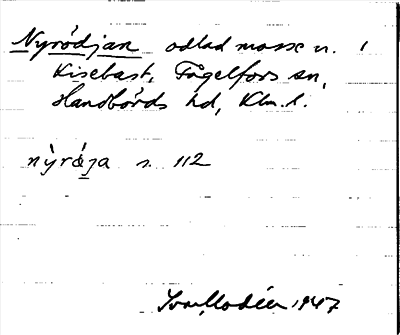 Nyrödjan odlad mosse n. i
Kisebast, Fågelfors sn,
Handbörds hd, Klm. l.
nỳrǿja s. 112
Ivar Modéer 1947